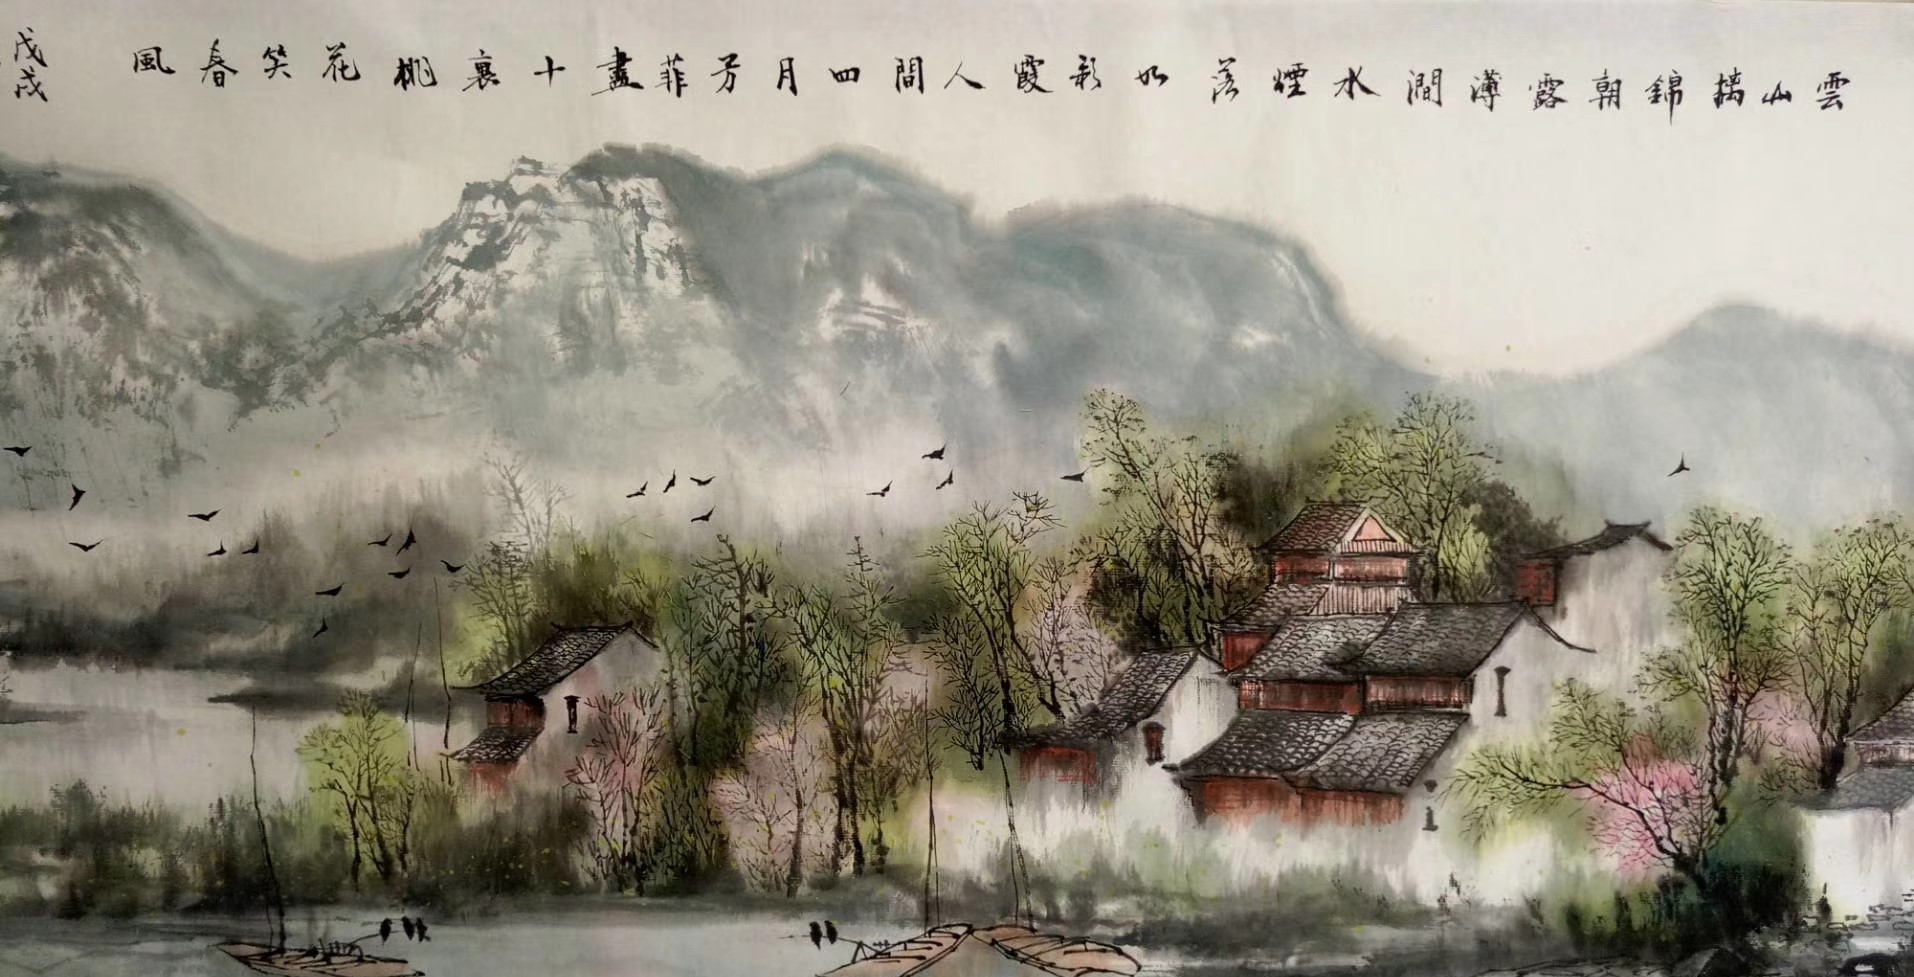 雲山摛錦朝露漙澗水煙落如彩霞人間四月芳菲盡十裏桃花笑春風
戊戌